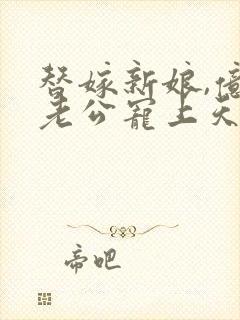 替嫁新娘,億
老公寵上天
帝吧